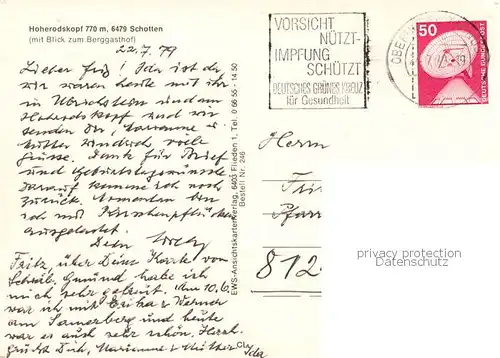 Hoherodskopf 770 m, 6479 Schotten
(mit Blick zum Berggasthof)
22.7.79
Lieber Fritz! Ida ist da
wir waren heute mit ihr
in Ulrichstein und am
Hoherodskopf und wir
senden Dir, Marianne u
Mutter viele
Grüsse. Dank für Brief
und Geburtstagswünsche
darauf komme ich noch
zurück. Momentan bin
ich mit Kirschenpflücken
ausgelastet.
Dein Willy
Fritz über Deine Karte von
Gmünd habe ich
mich sehr gefreut. Am 10.6.
war ich mit Erika & Werner
am Samerberg und heute
war es auch sehr schön. Herzl.
grüßt Dich, Marianne & Mutter
Ida
EWS-Ansichtskartenverlag, 6403 Flieden 1, Tel. 0 66 55 - 14 50
Bestell Nr. 246
VORSICHT
NÜTZT-
IMPFUNG
SCHÜTZT
DEUTSCHES GRÜNES KREUZ
für Gesundheit
50
DEUTSCHE BUNDESPOST
Herrn
812
privacy protection
watermark